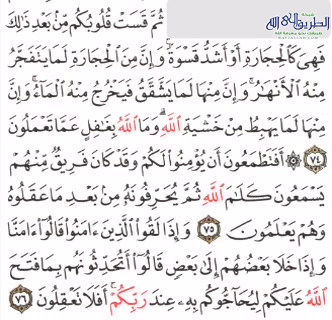 الطريق إلى الله
ثُمَّ قَسَتْ قُلُوبُكُم مِّنۢ بَعْدِ ذَٰلِكَ
فَهِىَ كَٱلْحِجَارَةِ أَوْ أَشَدُّ قَسْوَةً ۚ وَإِنَّ مِنَ ٱلْحِجَارَةِ لَمَا يَتَفَجَّرُ
مِنْهُ ٱلْأَنْهَٰرُ ۚ وَإِنَّ مِنْهَا لَمَا يَشَّقَّقُ فَيَخْرُجُ مِنْهُ ٱلْمَآءُ ۚ وَإِنَّ
مِنْهَا لَمَا يَهْبِطُ مِنْ خَشْيَةِ ٱللَّهِ ۗ وَمَا ٱللَّهُ بِغَٰفِلٍ عَمَّا تَعْمَلُونَ
٧٤ ۞ أَفَتَطْمَعُونَ أَن يُؤْمِنُوا۟ لَكُمْ وَقَدْ كَانَ فَرِيقٌ مِّنْهُمْ
يَسْمَعُونَ كَلَٰمَ ٱللَّهِ ثُمَّ يُحَرِّفُونَهُۥ مِنۢ بَعْدِ مَا عَقَلُوهُ
وَهُمْ يَعْلَمُونَ ٧٥ وَإِذَا لَقُوا۟ ٱلَّذِينَ ءَامَنُوا۟ قَالُوٓا۟ ءَامَنَّا
وَإِذَا خَلَا بَعْضُهُمْ إِلَىٰ بَعْضٍ قَالُوٓا۟ أَتُحَدِّثُونَهُم بِمَا فَتَحَ
ٱللَّهُ عَلَيْكُمْ لِيُحَآجُّوكُم بِهِۦ عِندَ رَبِّكُمْ ۚ أَفَلَا تَعْقِلُونَ ٧٦